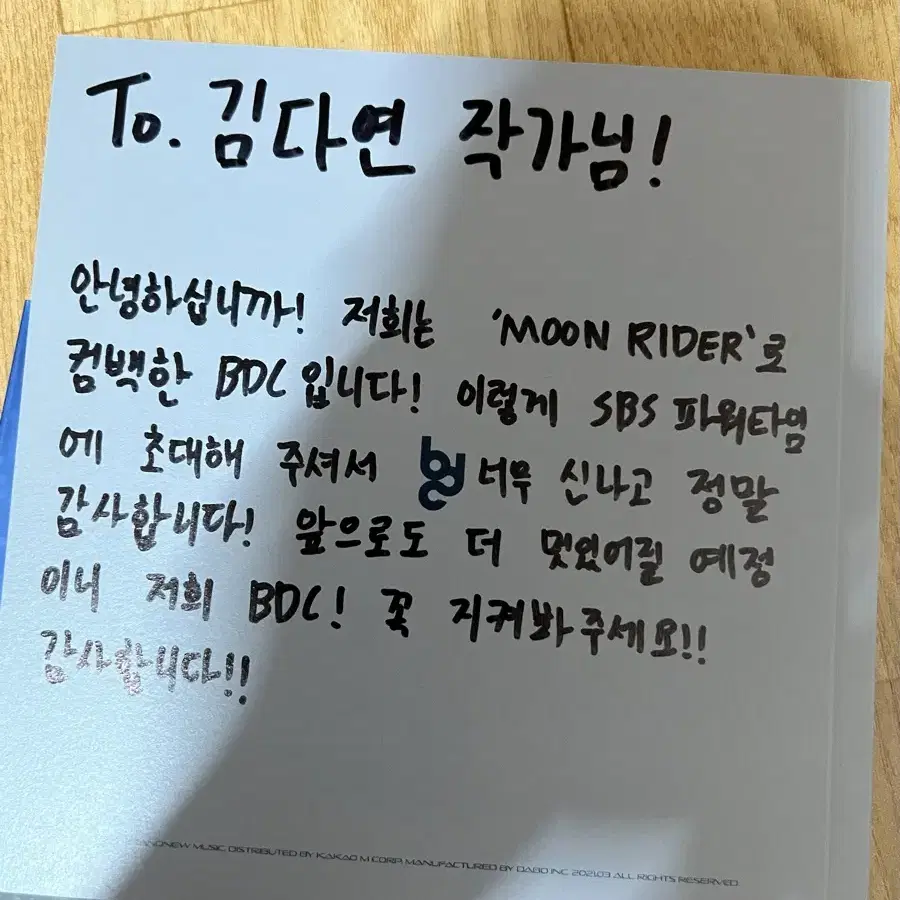 To. 김다연 작가님!
안녕하십니까! 저희는 'MOON RIDER'로
컴백한 BDC입니다! 이렇게 SBS 파워타임
에 초대해 주셔서 너무 신나고 정말
감사합니다! 앞으로도 더 멋있어질 예정
이니 저희 BDC! 꼭 지켜봐주세요!!
감사합니다!!
MUSIC. DISTRIBUTED BY KAKAO M CORP. MANUFACTURED BY DABO INC. 2021.03 ALL RIGHTS RESERVED.